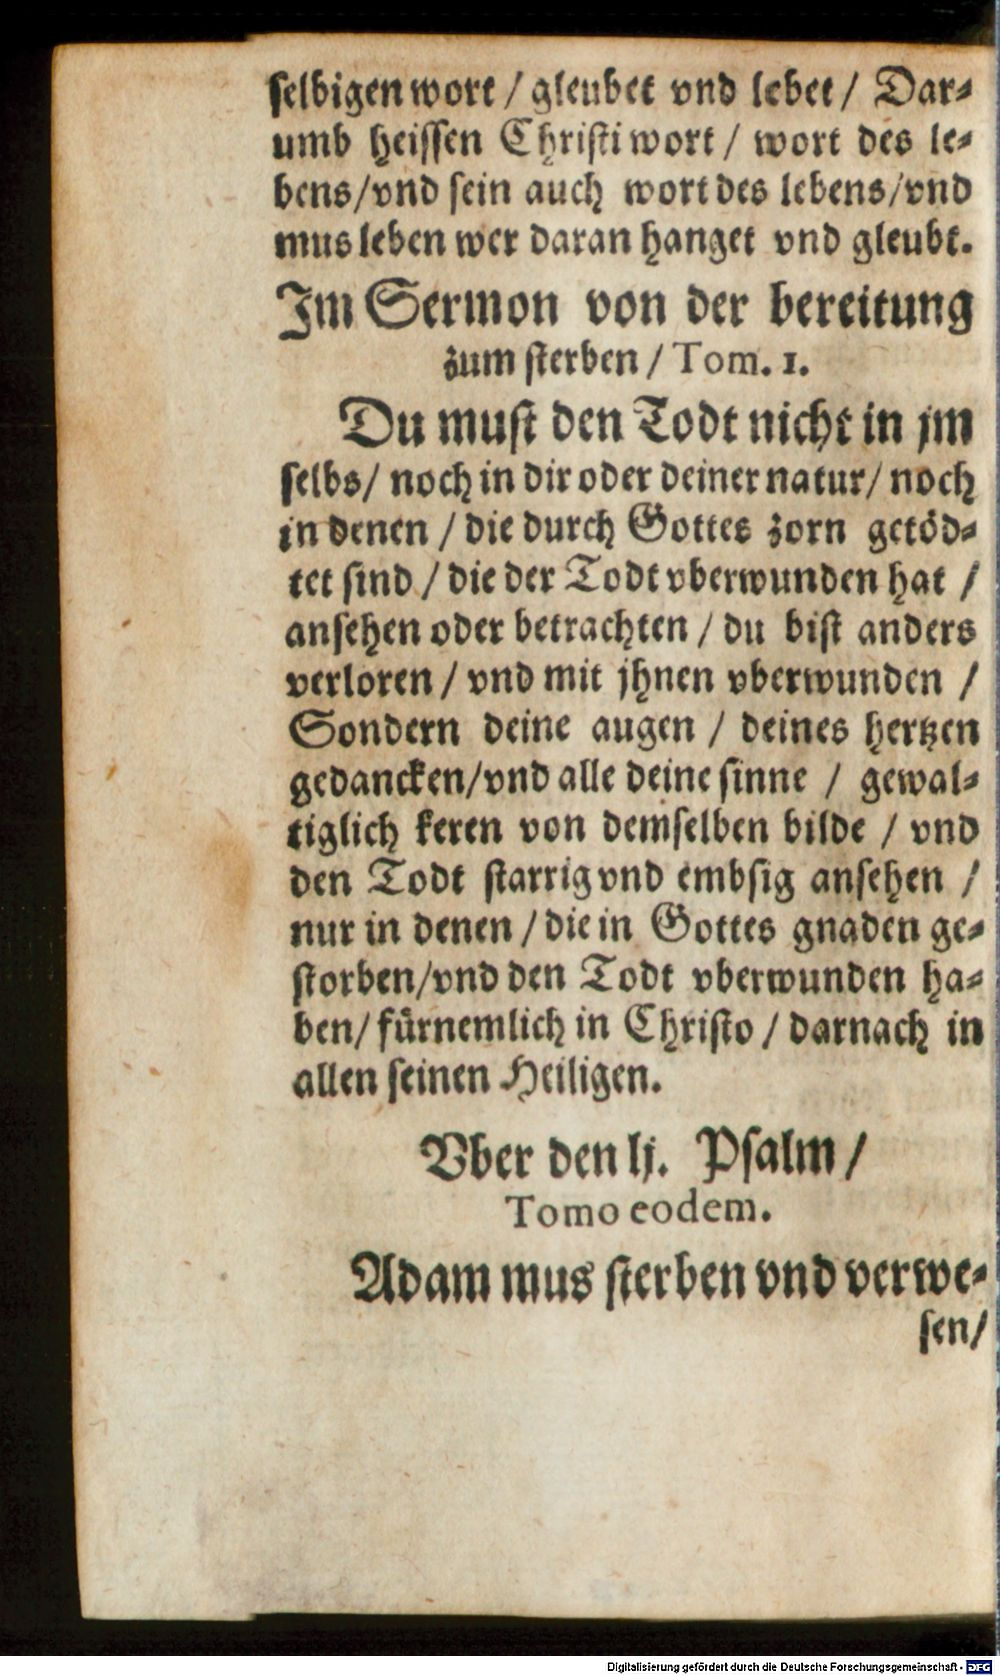 selbigen wort / gleubet vnd lebet / Dar-
umb heissen Christi wort / wort des le-
bens/vnd sein auch wort des lebens/vnd
mus leben wer daran hanget vnd gleubt.
Im Sermon von der bereitung
zum sterben / Tom. 1.
Du must den Todt nicht in jm
selbs/ noch in dir oder deiner natur/ noch
in denen / die durch Gottes zorn getöd-
tet sind / die der Todt vberwunden hat /
ansehen oder betrachten / du bist anders
verloren / vnd mit jhnen vberwunden /
Sondern deine augen / deines hertzen
gedancken/vnd alle deine sinne / gewal-
tiglich keren von demselben bilde / vnd
den Todt starrig vnd embsig ansehen /
nur in denen / die in Gottes gnaden ge-
storben/vnd den Todt vberwunden ha-
ben/ fürnemlich in Christo / darnach in
allen seinen Heiligen.
Vber den lj. Psalm /
Tomo eodem.
Adam mus sterben vnd verwe-
sen/
Digitalisierung gefördert durch die Deutsche Forschungsgemeinschaft - DFG